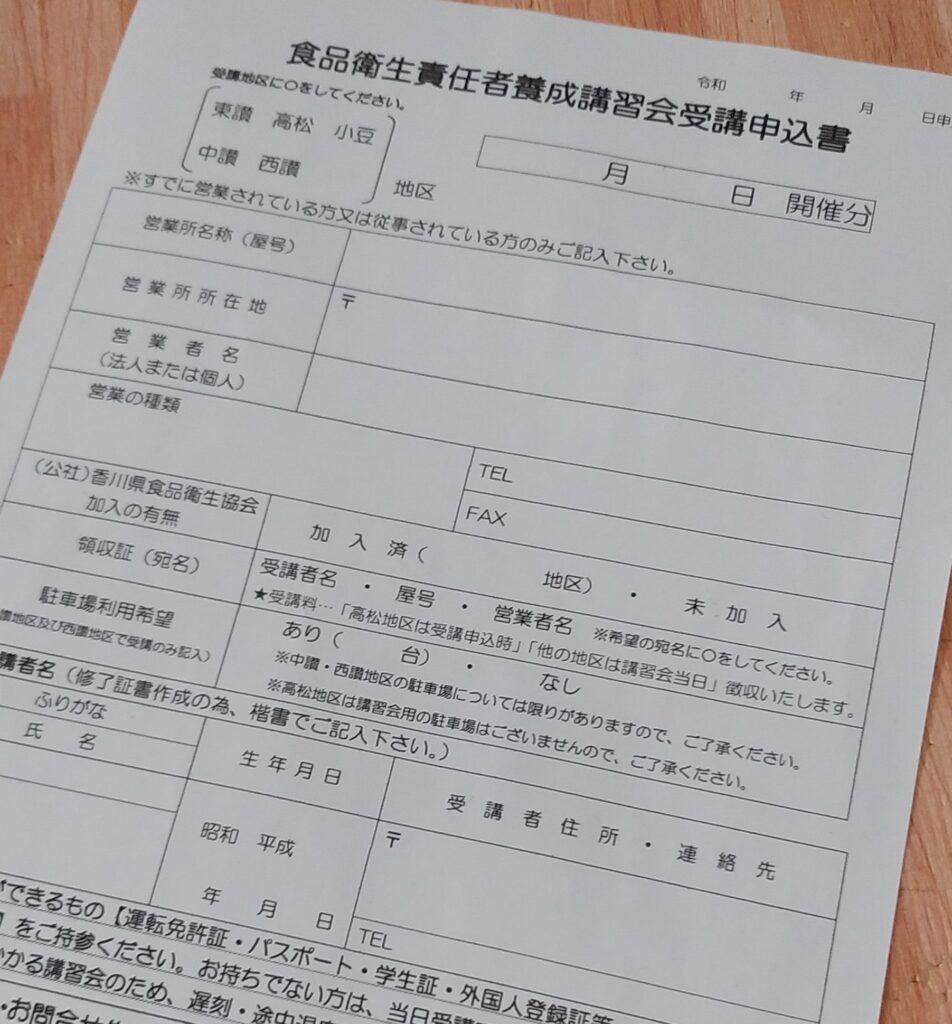 令和　年　月　日申
食品衛生責任者養成講習会受講申込書
受講地区に○をしてください。
東讃　高松　小豆
中讃　西讃
地区
月　日　開催分
※すでに営業されている方又は従事されている方のみご記入下さい。
営業所名称（屋号）
営業所所在地
〒
営業者名
（法人または個人）
営業の種類
TEL
FAX
（公社）香川県食品衛生協会
加入の有無
加入済（　地区）・未加入
領収証（宛名）
受講者名・屋号・営業者名　※希望の宛名に○をしてください。
★受講料…「高松地区は受講申込時」「他の地区は講習会当日」徴収いたします。
駐車場利用希望
讃地区及び西讃地区で受講のみ記入）
あり（　台）・なし
※中讃・西讃地区の駐車場については限りがありますので、ご了承ください。
※高松地区は講習会用の駐車場はございませんので、ご了承ください。
講者名（修了証書作成の為、楷書でご記入下さい。）
ふりがな
氏　名
生年月日
昭和　平成
年　月　日
受講者住所・連絡先
〒
TEL
できるもの【運転免許証・パスポート・学生証・外国人登録証等
】をご持参ください。お持ちでない方は、当日受講
かる講習会のため、遅刻・途中退
・お問合せ